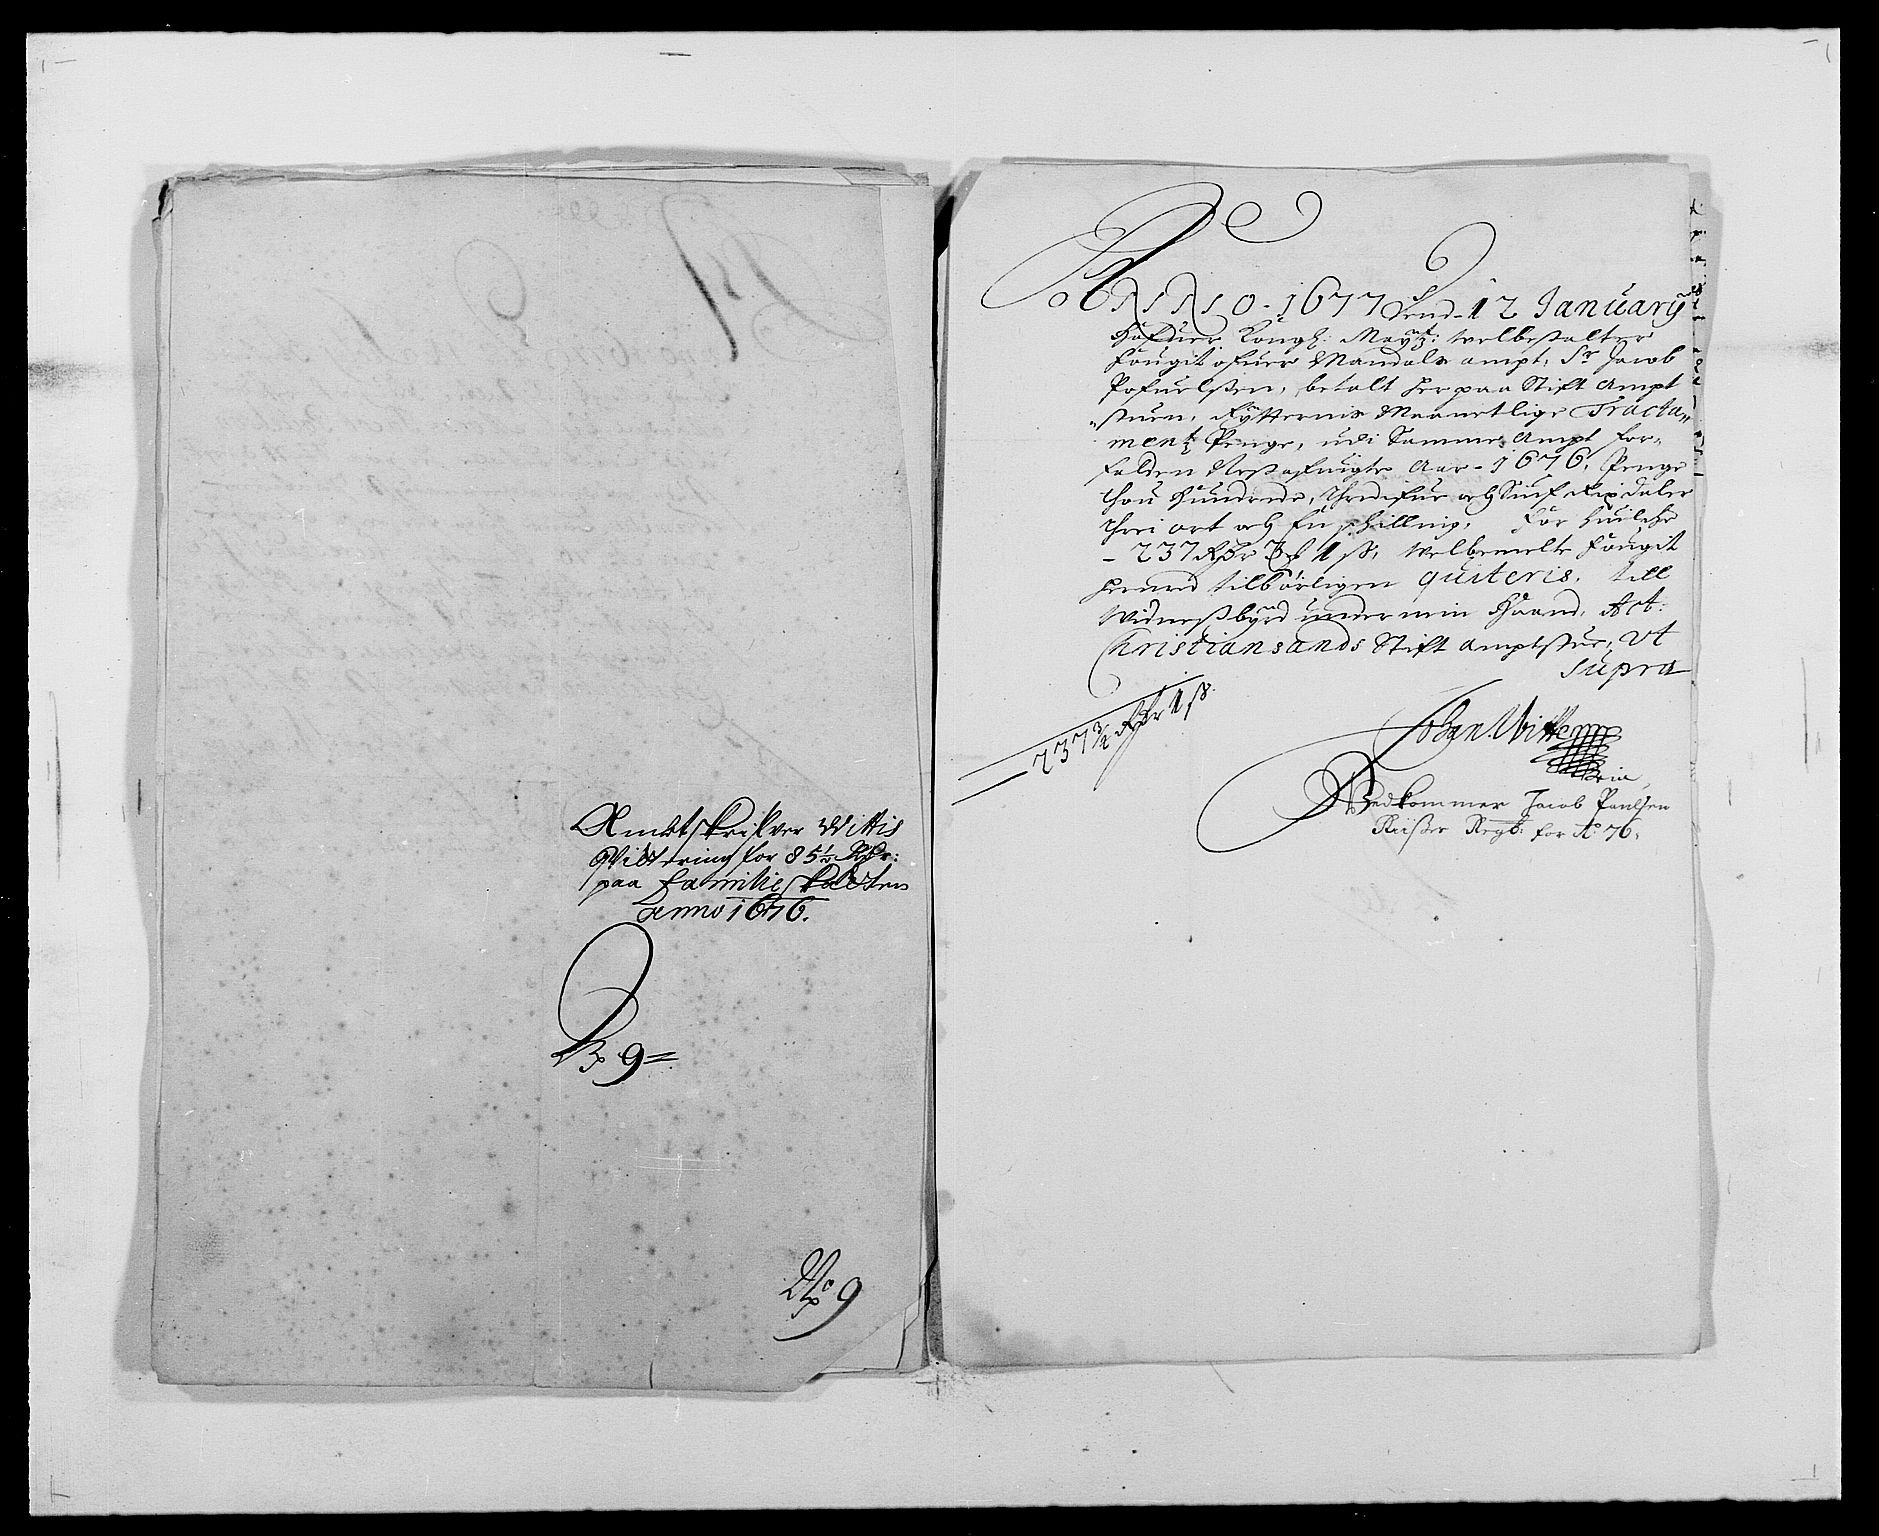 Ambtskrifver Wittis
Qvittering for 85½ Rdr:
paa familie skatten
Anno 1676.
No 9
No 9
ANNO - 1677 Dend - 12 January
Hafuer Kongl: Mayttz: welbestalter
fougit ofuer Mandals ampt, Sr Jacob
Pofuelssen, betalt her paa Stift Ampt
stuen, Rÿtternis Maanetlige Tracta,,
mentz Penge, udi Samme Ampt for,,
falden Nestafuigte Aar - 1676, Penge
thou Hundrede, Thredifue och Siuf Rix daler
threi ort och En schilling, for huilche
- 237 Rdr 3 ort 1 ß, welbemelte fougit
herued tilbörligen quiteris. till
Widnessbÿrd under min Haand, Act:
Christiansands Stift amptstue, Ut
supra
237¾ Rdr 1 ß.
Johan Witte
Vedkommer Jacob Poulsen
Riisser Regb: for Ao 76.